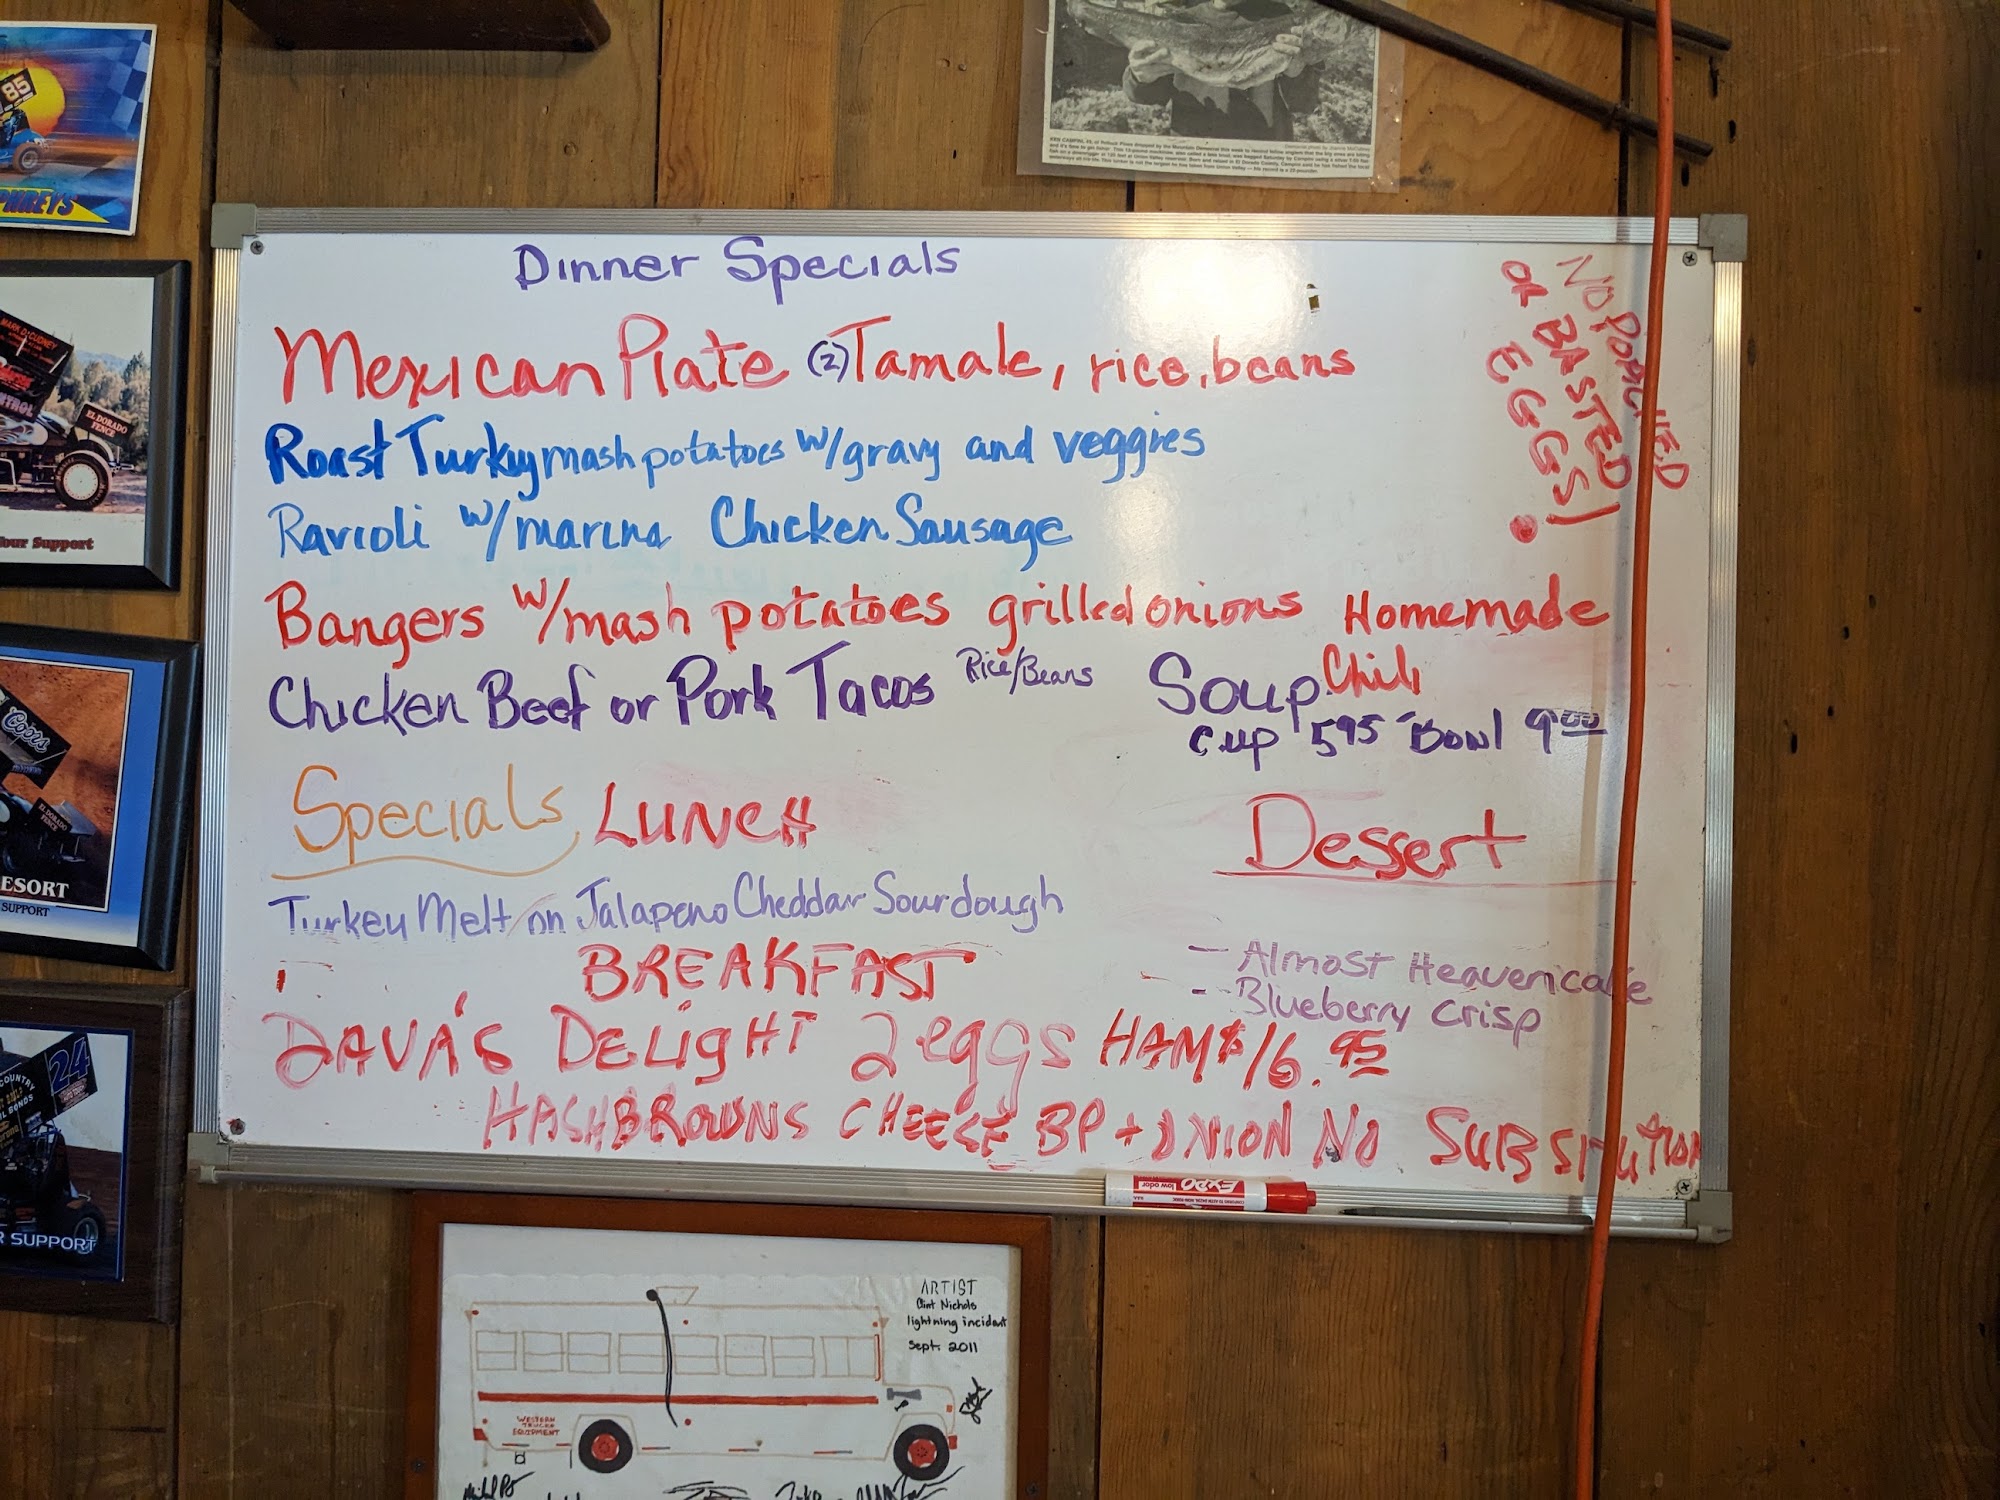 85
PHREYS
MARK DECUDNEY
EL DORADO
FENCE
Your Support
Coors
EL DORADO
FENCE
ESORT
SUPPORT
24
COUNTRY
IL BONDS
R SUPPORT
Dinner Specials
Mexican Plate (2) Tamale, rice, beans
Roast Turkey mash potatoes w/gravy and veggies
Ravioli w/marina Chicken Sausage
Bangers w/mash potatoes grilled onions Homemade
Chicken Beef or Pork Tacos Rice/Beans Soup Chili
Cup 595 Bowl 900
No POACHED
OR BASTED
EGGS!
Specials LUNCH
Turkey Melt on Jalapeno Cheddar Sourdough
Dessert
- Almost Heaven cake
- Blueberry Crisp
BREAKFAST
DAVA'S DELIGHT 2 eggs HAM $16.95
HASHBROWNS CHEESE BP + ONION NO SUBSITUTION
EXPO
low odor
ARTIST
Clint Nichols
lightning incident
Sept. 2011
WESTERN
TRUCK
EQUIPMENT